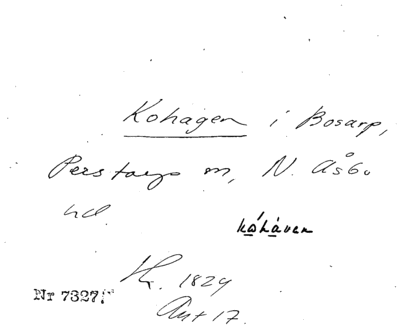 Kohagen i Bosarp,
Perstorps m, N. Åsbo
hd.
kåhåven
Kr. 1829
Ant 17.
Nr 7327.